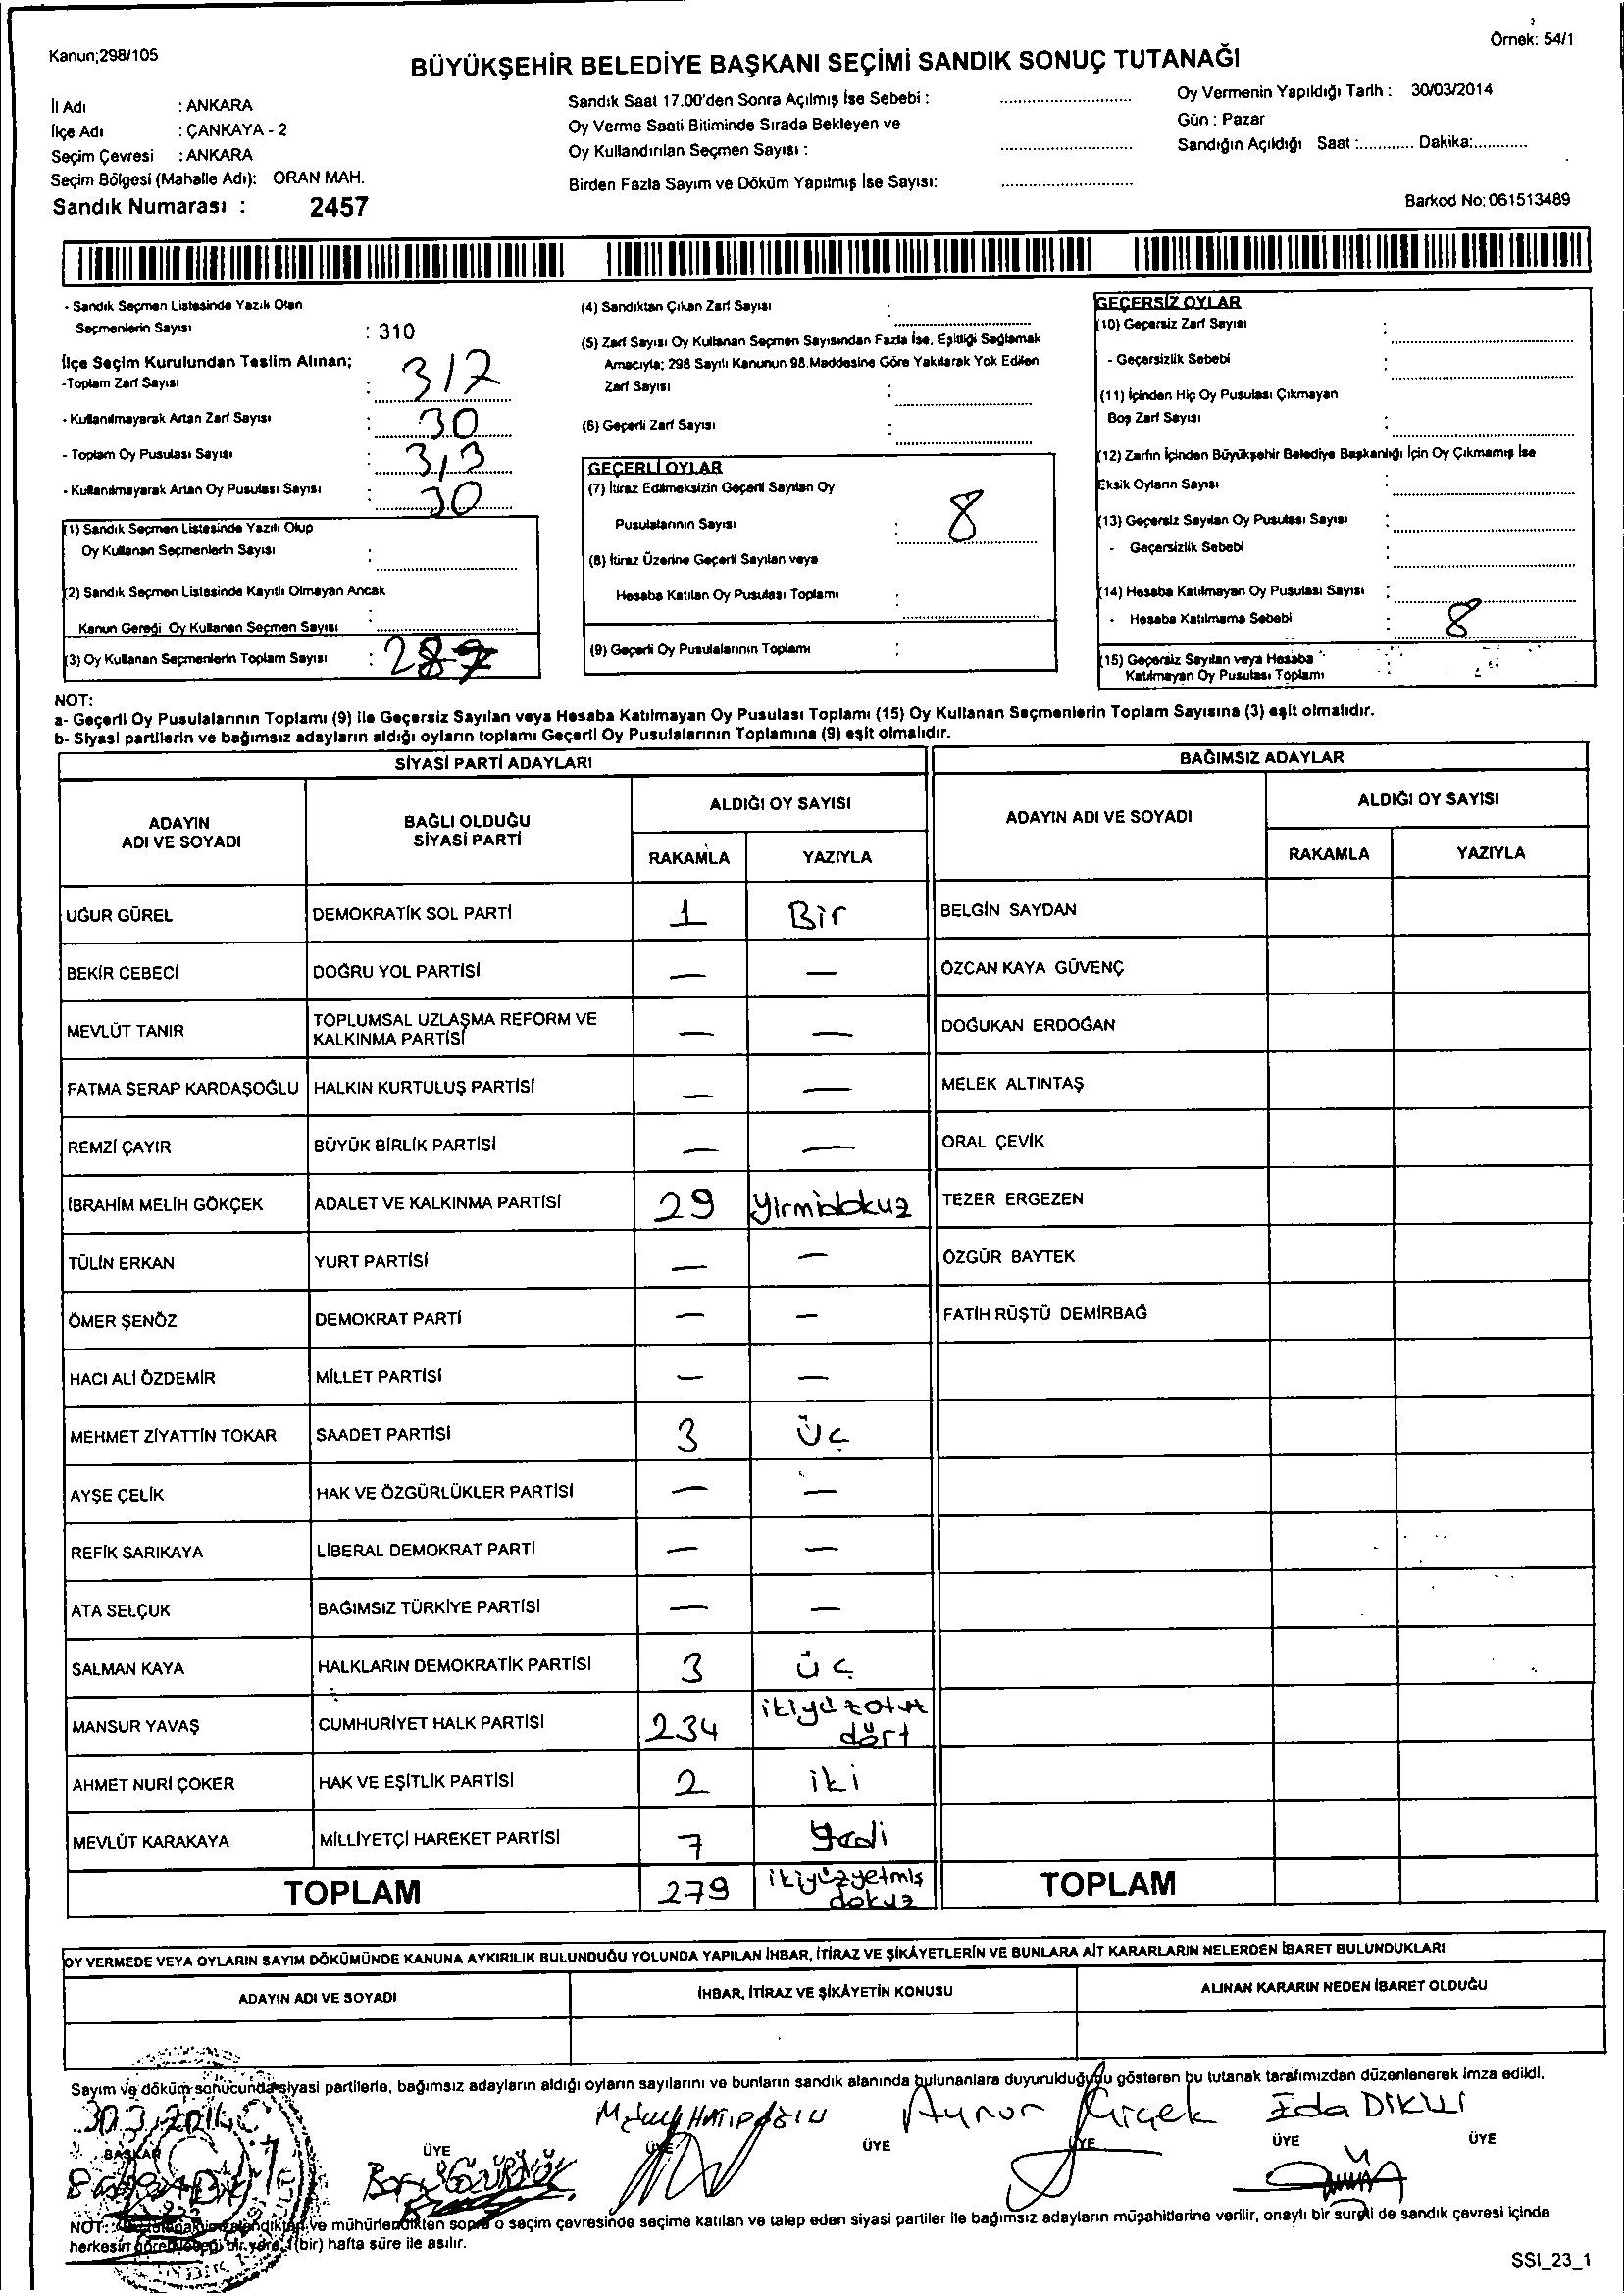 Örnek: 54/1
Kanun;298/105
BÜYÜKŞEHİR BELEDİYE BAŞKANI SEÇİMİ SANDIK SONUÇ TUTANAĞI
İl Adı : ANKARA
İlçe Adı : ÇANKAYA - 2
Seçim Çevresi : ANKARA
Seçim Bölgesi (Mahalle Adı): ORAN MAH.
Sandık Numarası : 2457
Sandık Saat 17.00'den Sonra Açılmış İse Sebebi :
Oy Verme Saati Bitiminde Sırada Bekleyen ve
Oy Kullandırılan Seçmen Sayısı :
Birden Fazla Sayım ve Döküm Yapılmış İse Sayısı:
Oy Vermenin Yapıldığı Tarih : 30/03/2014
Gün : Pazar
Sandığın Açıldığı Saat :............ Dakika:............
Barkod No: 061513489
- Sandık Seçmen Listesinde Yazılı Olan
Seçmenlerin Sayısı : 310
İlçe Seçim Kurulundan Teslim Alınan;
-Toplam Zarf Sayısı : 317
- Kullanılmayarak Artan Zarf Sayısı : 30
- Toplam Oy Pusulası Sayısı : 313
- Kullanılmayarak Artan Oy Pusulası Sayısı : 30
(1) Sandık Seçmen Listesinde Yazılı Olup
Oy Kullanan Seçmenlerin Sayısı :
(2) Sandık Seçmen Listesinde Kayıtlı Olmayan Ancak
Kanun Gereği Oy Kullanan Seçmen Sayısı :
(3) Oy Kullanan Seçmenlerin Toplam Sayısı : 287
(4) Sandıktan Çıkan Zarf Sayısı :
(5) Zarf Sayısı Oy Kullanan Seçmen Sayısından Fazla İse, Eşitliği Sağlamak
Amacıyla; 298 Sayılı Kanunun 98.Maddesine Göre Yakılarak Yok Edilen
Zarf Sayısı :
(6) Geçerli Zarf Sayısı :
GEÇERLİ OYLAR
(7) İtiraz Edilmeksizin Geçerli Sayılan Oy
Pusulalarının Sayısı : 8
(8) İtiraz Üzerine Geçerli Sayılan veya
Hesaba Katılan Oy Pusulası Toplamı :
(9) Geçerli Oy Pusulalarının Toplamı :
GEÇERSİZ OYLAR
(10) Geçersiz Zarf Sayısı :
- Geçersizlik Sebebi :
(11) İçinden Hiç Oy Pusulası Çıkmayan
Boş Zarf Sayısı :
(12) Zarfın İçinden Büyükşehir Belediye Başkanlığı İçin Oy Çıkmamış İse
Eksik Oyların Sayısı :
(13) Geçersiz Sayılan Oy Pusulası Sayısı :
- Geçersizlik Sebebi :
(14) Hesaba Katılmayan Oy Pusulası Sayısı :
- Hesaba Katılmama Sebebi : 8
(15) Geçersiz Sayılan veya Hesaba
Katılmayan Oy Pusulası Toplamı :
NOT:
a- Geçerli Oy Pusulalarının Toplamı (9) ile Geçersiz Sayılan veya Hesaba Katılmayan Oy Pusulası Toplamı (15) Oy Kullanan Seçmenlerin Toplam Sayısına (3) eşit olmalıdır.
b- Siyasi partilerin ve bağımsız adayların aldığı oyların toplamı Geçerli Oy Pusulalarının Toplamına (9) eşit olmalıdır.
SİYASİ PARTİ ADAYLARI BAĞIMSIZ ADAYLAR
ADAYIN ADI VE SOYADI BAĞLI OLDUĞU SİYASİ PARTİ ALDIĞI OY SAYISI ADAYIN ADI VE SOYADI ALDIĞI OY SAYISI
RAKAMLA YAZIYLA RAKAMLA YAZIYLA
UĞUR GÜREL DEMOKRATİK SOL PARTİ 1 Bir BELGİN SAYDAN
BEKİR CEBECİ DOĞRU YOL PARTİSİ — — ÖZCAN KAYA GÜVENÇ
MEVLÜT TANIR TOPLUMSAL UZLAŞMA REFORM VE KALKINMA PARTİSİ — — DOĞUKAN ERDOĞAN
FATMA SERAP KARDAŞOĞLU HALKIN KURTULUŞ PARTİSİ — — MELEK ALTINTAŞ
REMZİ ÇAYIR BÜYÜK BİRLİK PARTİSİ — — ORAL ÇEVİK
İBRAHİM MELİH GÖKÇEK ADALET VE KALKINMA PARTİSİ 29 yirmidokuz TEZER ERGEZEN
TÜLİN ERKAN YURT PARTİSİ — — ÖZGÜR BAYTEK
ÖMER ŞENÖZ DEMOKRAT PARTİ — — FATİH RÜŞTÜ DEMİRBAĞ
HACI ALİ ÖZDEMİR MİLLET PARTİSİ — —
MEHMET ZİYATTİN TOKAR SAADET PARTİSİ 3 Üç
AYŞE ÇELİK HAK VE ÖZGÜRLÜKLER PARTİSİ — —
REFİK SARIKAYA LİBERAL DEMOKRAT PARTİ — —
ATA SELÇUK BAĞIMSIZ TÜRKİYE PARTİSİ — —
SALMAN KAYA HALKLARIN DEMOKRATİK PARTİSİ 3 üç
MANSUR YAVAŞ CUMHURİYET HALK PARTİSİ 234 ikiyüzotuz dört
AHMET NURİ ÇOKER HAK VE EŞİTLİK PARTİSİ 2 iki
MEVLÜT KARAKAYA MİLLİYETÇİ HAREKET PARTİSİ 7 yedi
TOPLAM 279 ikiyüzyetmiş dokuz TOPLAM
OY VERMEDE VEYA OYLARIN SAYIM DÖKÜMÜNDE KANUNA AYKIRILIK BULUNDUĞU YOLUNDA YAPILAN İHBAR, İTİRAZ VE ŞİKÂYETLERİN VE BUNLARA AİT KARARLARIN NELERDEN İBARET BULUNDUKLARI
ADAYIN ADI VE SOYADI İHBAR, İTİRAZ VE ŞİKÂYETİN KONUSU ALINAN KARARIN NEDEN İBARET OLDUĞU
Sayım ve döküm sonucunda siyasi partilerle, bağımsız adayların aldığı oyların sayılarını ve bunların sandık alanında bulunanlara duyurulduğunu gösteren bu tutanak tarafımızdan düzenlenerek imza edildi.
30.3.2014 Aynur Çiçek Eda DİKİLİ
BAŞKAN ÜYE ÜYE ÜYE ÜYE ÜYE ÜYE
NOT: ve mühürlendikten sonra o seçim çevresinde seçime katılan ve talep eden siyasi partiler ile bağımsız adayların müşahitlerine verilir, onaylı bir sureti de sandık çevresi içinde
herkesin görebileceği bir yere 1(bir) hafta süre ile asılır.
SSI_23_1